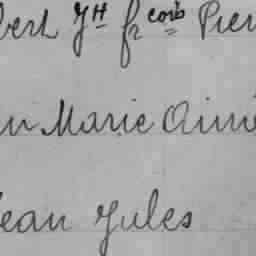 bert Jh fr corb Pier
n Marie Aimé
Jean Jules